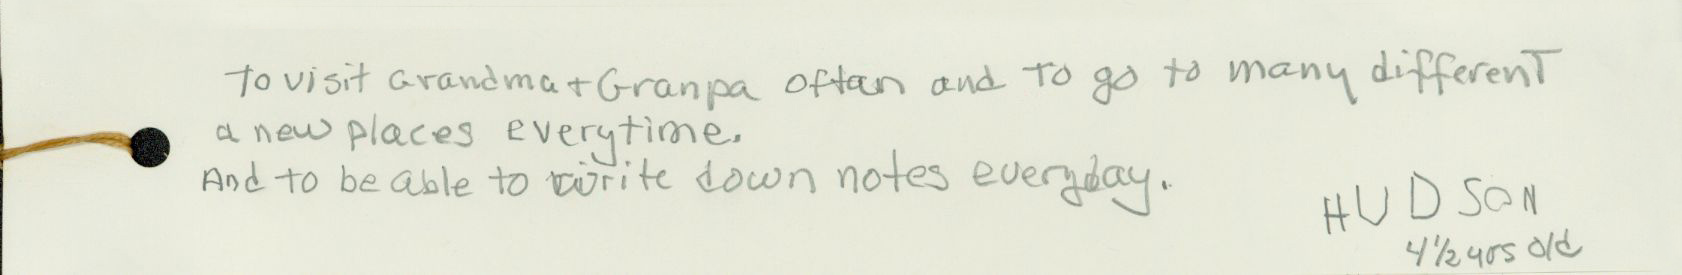 To visit Grandma + Granpa oftan and to go to many different
a new places everytime.
And to be able to write down notes everyday.
HUDSON
4 1/2 yrs old